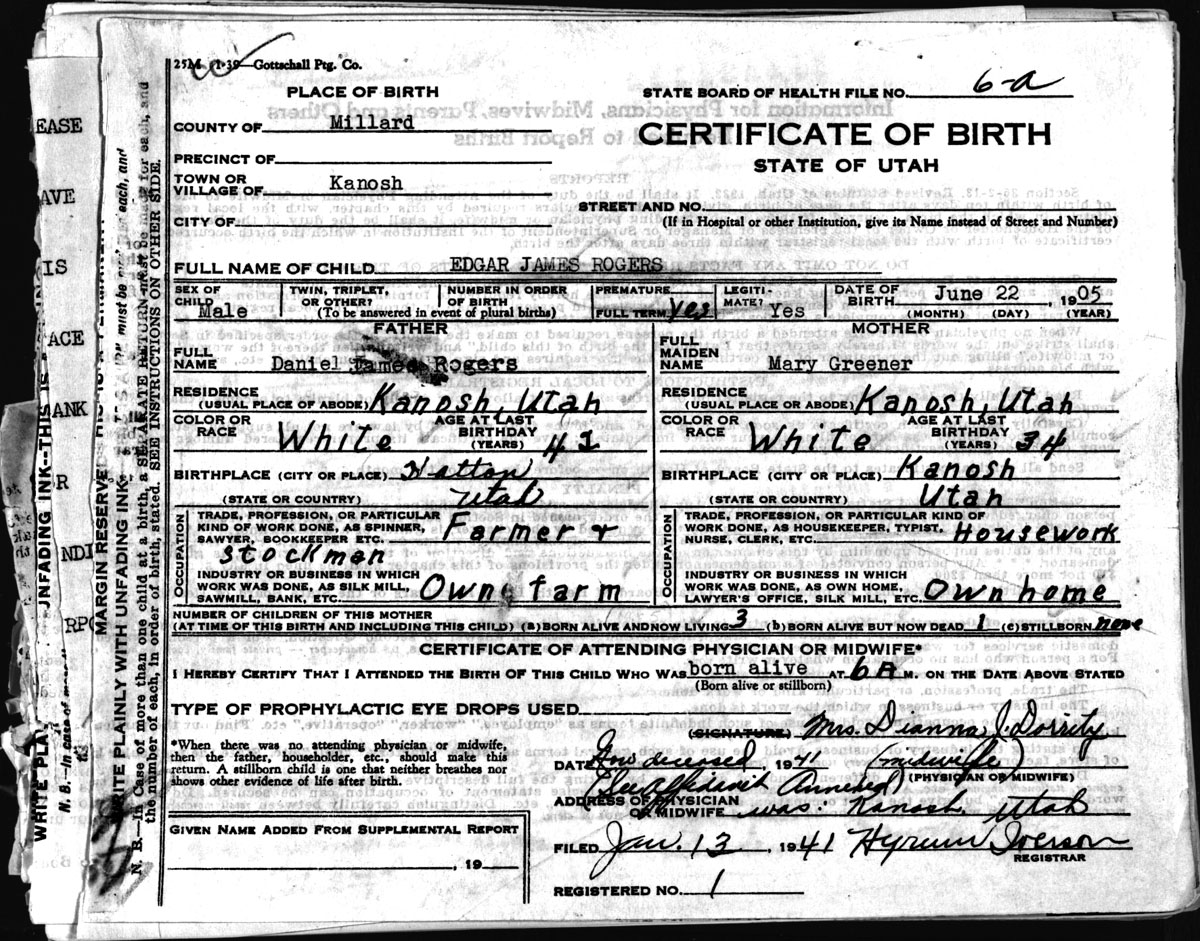 25M 1-39—Gottschall Ptg. Co.
PLACE OF BIRTH
STATE BOARD OF HEALTH FILE NO. 6-a
COUNTY OF Millard
CERTIFICATE OF BIRTH
PRECINCT OF
STATE OF UTAH
TOWN OR
VILLAGE OF Kanosh
STREET AND NO.
CITY OF (If in Hospital or other Institution, give its Name instead of Street and Number)
FULL NAME OF CHILD EDGAR JAMES ROGERS
SEX OF
CHILD
Male
TWIN, TRIPLET,
OR OTHER?
NUMBER IN ORDER
OF BIRTH
(To be answered in event of plural births)
PREMATURE
FULL TERM yes
LEGITI-
MATE? Yes
DATE OF
BIRTH June 22, 1905
(MONTH) (DAY) (YEAR)
FATHER
FULL
NAME Daniel James Rogers
RESIDENCE
(USUAL PLACE OF ABODE) Kanosh, Utah
COLOR OR
RACE White
AGE AT LAST
BIRTHDAY
(YEARS) 41
BIRTHPLACE (CITY OR PLACE) Hatton
(STATE OR COUNTRY) Utah
OCCUPATION
TRADE, PROFESSION, OR PARTICULAR
KIND OF WORK DONE, AS SPINNER,
SAWYER, BOOKKEEPER ETC. Farmer &
stockman
INDUSTRY OR BUSINESS IN WHICH
WORK WAS DONE, AS SILK MILL,
SAWMILL, BANK, ETC. Own farm
MOTHER
FULL
MAIDEN
NAME Mary Greener
RESIDENCE
(USUAL PLACE OF ABODE) Kanosh, Utah
COLOR OR
RACE White
AGE AT LAST
BIRTHDAY
(YEARS) 34
BIRTHPLACE (CITY OR PLACE) Kanosh
(STATE OR COUNTRY) Utah
OCCUPATION
TRADE, PROFESSION, OR PARTICULAR KIND OF
WORK DONE, AS HOUSEKEEPER, TYPIST.
NURSE, CLERK, ETC. Housework
INDUSTRY OR BUSINESS IN WHICH
WORK WAS DONE, AS OWN HOME,
LAWYER'S OFFICE, SILK MILL, ETC. Own home
NUMBER OF CHILDREN OF THIS MOTHER
(AT TIME OF THIS BIRTH AND INCLUDING THIS CHILD) (a) BORN ALIVE AND NOW LIVING 3 (b) BORN ALIVE BUT NOW DEAD 1 (c) STILLBORN none
CERTIFICATE OF ATTENDING PHYSICIAN OR MIDWIFE*
I HEREBY CERTIFY THAT I ATTENDED THE BIRTH OF THIS CHILD WHO WAS born alive AT 6 A M. ON THE DATE ABOVE STATED
(Born alive or stillborn)
TYPE OF PROPHYLACTIC EYE DROPS USED
*When there was no attending physician or midwife,
then the father, householder, etc., should make this
return. A stillborn child is one that neither breathes nor
shows other evidence of life after birth.
(SIGNATURE) Mrs. Dianna J. Dorrity
DATE Now deceased, 194 (midwife)
(See Affidavit Annexed) (PHYSICIAN OR MIDWIFE)
ADDRESS OF PHYSICIAN
OR MIDWIFE was: Kanosh, Utah
GIVEN NAME ADDED FROM SUPPLEMENTAL REPORT
, 19
FILED Jan. 13, 1941 Hyrum Iverson
REGISTRAR
REGISTERED NO. 1
MARGIN RESERVE
WRITE PLAINLY WITH UNFADING INK
N. B.—In case of more than one child at a birth, a SEPARATE RETURN must be made for each, and
the number of each, in order of birth, stated. SEE INSTRUCTIONS ON OTHER SIDE.